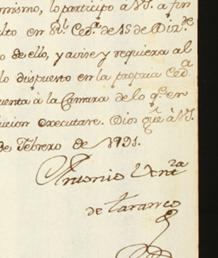 mismo, lo participo à V.S. a fin
lto en Rl. Ced.a de 15 de Diz.e
o de ello, y avise y requiera al
lo dispuesto en la propria Ced.a
uenta à la Camara de lo q.e en
ucion executare. Dios gue à V.S.
de Febrero de 1791.
Antonio Vent.ra
de Taranco